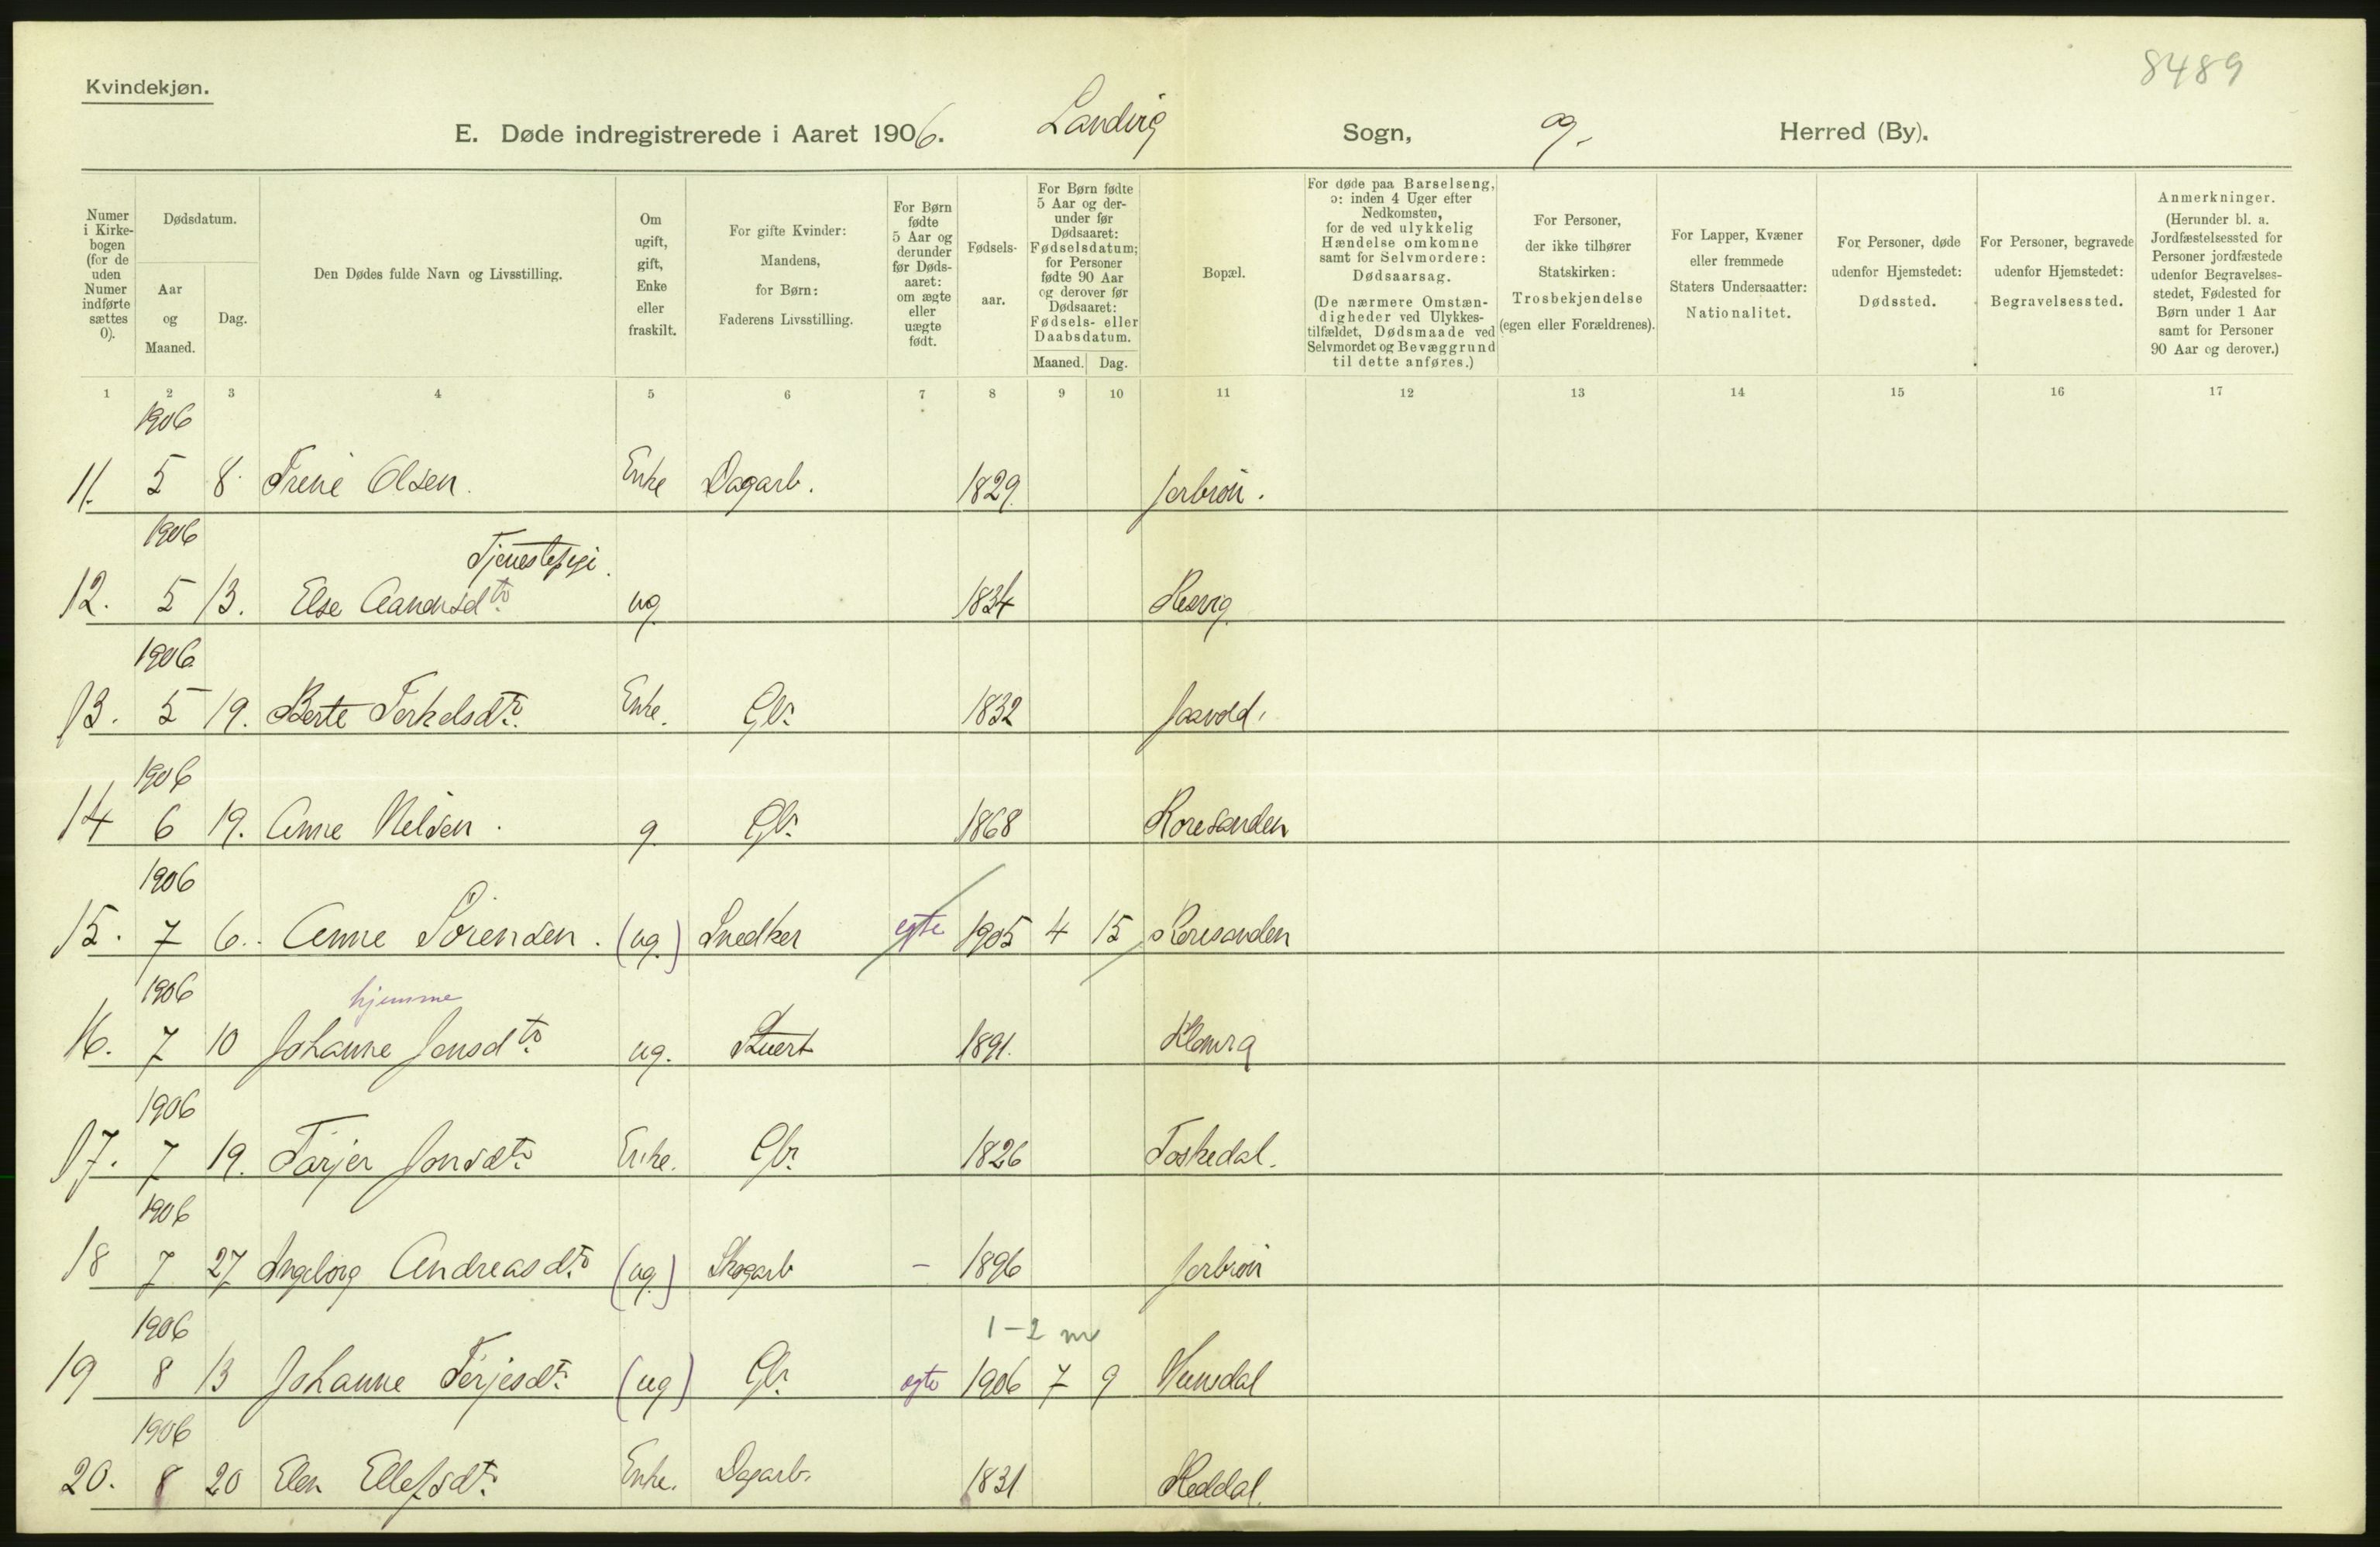 8489
Kvindekjøn.
E. Døde indregistrerede i Aaret 1906. Landvig Sogn, og. Herred (By).
Numer i Kirke-bogen (for de uden Numer indførte sættes 0).
Dødsdatum.
Aar og Maaned.
Dag.
Den Dødes fulde Navn og Livsstilling.
Om ugift, gift, Enke eller fraskilt.
For gifte Kvinder: Mandens, for Børn: Faderens Livsstilling.
For Børn fødte 5 Aar og derunder før Døds-aaret: om ægte eller uægte født.
Fødsels-aar.
For Børn fødte 5 Aar og der-under før Dødsaaret: Fødselsdatum; for Personer fødte 90 Aar og derover før Dødsaaret: Fødsels- eller Daabsdatum.
Maaned. Dag.
Bopæl.
For døde paa Barselseng, ɔ: inden 4 Uger efter Nedkomsten, for de ved ulykkelig Hændelse omkomne samt for Selvmordere: Dødsaarsag.
(De nærmere Omstæn-digheder ved Ulykkes-tilfældet, Dødsmaade ved Selvmordet og Bevæggrund til dette anføres.)
For Personer, der ikke tilhører Statskirken: Trosbekjendelse (egen eller Forældrenes).
For Lapper, Kvæner eller fremmede Staters Undersaatter: Nationalitet.
For Personer, døde udenfor Hjemstedet: Dødssted.
For Personer, begravede udenfor Hjemstedet: Begravelsessted.
Anmerkninger.
(Herunder bl. a. Jordfæstelsessted for Personer jordfæstede udenfor Begravelses-stedet, Fødested for Børn under 1 Aar samt for Personer 90 Aar og derover.)
1 2 3 4 5 6 7 8 9 10 11 12 13 14 15 16 17
1906
11. 5 8. Trine Olsen. Enke Dagarb. 1829.
1906
Tjenestepige.
12. 5 13. Else ug 1834 Resvig
1906
13. 5 19. Berte Terkelsdtr. Enke. Gbr. 1832
1906
14 6 19. Anne Nelsen. g. Gbr. 1868 Roresanden
1906
15. 7 6. Anne Sørensen. (ug.) Snedker egte 1905 4 15 Roresanden
1906
hjemme
16. 7 10 Johanne Jensdtr ug. Stuert 1891.
1906
17. 7 19. Tarjer Jonsdtr. Enke. Gbr. 1826
1906
18 7 27 Ingeborg Andreasdtr. (ug.) Skogarb - 1896
1906
1-2 m
19 8 13 Johanne Terjesdtr. (ug) Gbr. egte 1906 7 9
1906
20. 8 20 Elen Ellefsdtr. Enke. Dagarb. 1831 Reddal.